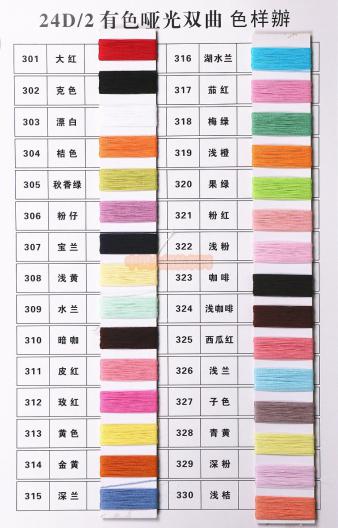 24D/2 有色哑光双曲 色样辦
301 大红
302 克色
303 漂白
304 桔色
305 秋香绿
306 粉仔
307 宝兰
308 浅黄
309 水兰
310 暗咖
311 皮红
312 玫红
313 黄色
314 金黄
315 深兰
316 湖水兰
317 茄红
318 梅绿
319 浅橙
320 果绿
321 粉红
322 浅粉
323 咖啡
324 浅咖啡
325 西瓜红
326 浅兰
327 子色
328 青黄
329 深粉
330 浅桔